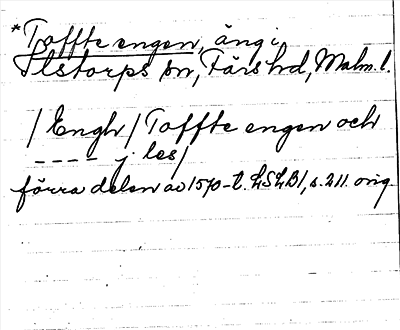 *Toffte engen, äng i
Ilstorps sn, Färs hd, Malm.l.
/Engh/ Toffte engen och
---- j. les/
förra delen av 1570-t. LSLB1, s. 211. orig.